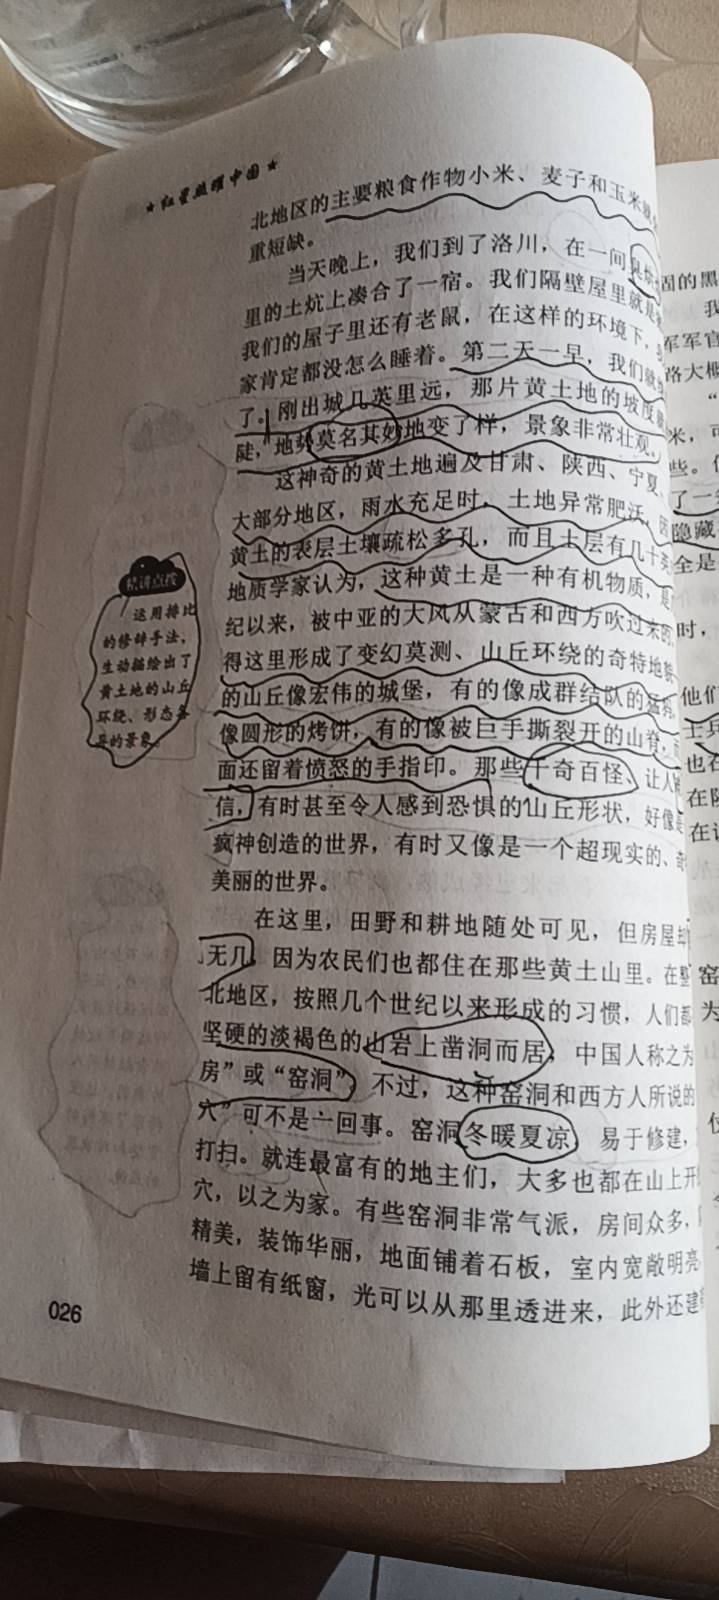 ★红星照耀中国★
北地区的主要粮食作物小米、麦子和玉米
重短缺。
当天晚上，我们到了洛川，在一间
里的土炕上凑合了一宿。我们隔壁屋里就是
我们的屋子里还有老鼠，在这样的环境下，
家肯定都没怎么睡着。第二天一早，我们就
了。刚出城几英里远，那片黄土地的坡度
陡，地势莫名其妙地变了样，景象非常壮观。
这神奇的黄土地遍及甘肃、陕西、宁夏、
大部分地区，雨水充足时，土地异常肥沃，因
黄土的表层土壤疏松多孔，而且土层有几十英
地质学家认为，这种黄土是一种有机物质，是
纪以来，被中亚的大风从蒙古和西方吹过来的
得这里形成了变幻莫测、山丘环绕的奇特地貌
的山丘像宏伟的城堡，有的像成群结队的猛犸，
像圆形的烤饼，有的像被巨手撕裂开的山脊，
面还留着愤怒的手指印。那些千奇百怪、让人
信，有时甚至令人感到恐惧的山丘形状，好像是
疯神创造的世界，有时又像是一个超现实的、奇
美丽的世界。
在这里，田野和耕地随处可见，但房屋却
无几，因为农民们也都住在那些黄土山里。在整
北地区，按照几个世纪以来形成的习惯，人们都
坚硬的淡褐色的山岩上凿洞而居，中国人称之为
房”或“窑洞”。不过，这种窑洞和西方人所说的
穴”可不是一回事。窑洞冬暖夏凉，易于修建，
打扫。就连最富有的地主们，大多也都在山上开
穴，以之为家。有些窑洞非常气派，房间众多，
精美，装饰华丽，地面铺着石板，室内宽敞明亮
墙上留有纸窗，光可以从那里透进来，此外还建
精讲点拨
运用排比
的修辞手法，
生动描绘出了
黄土地的山丘
环绕、形态各
异的景象。
026
固的黑
我
军军官
路大概
“
米，可
些。但
了一
隐藏
全是
时，
他们
士兵
也在
在
在
窑
为